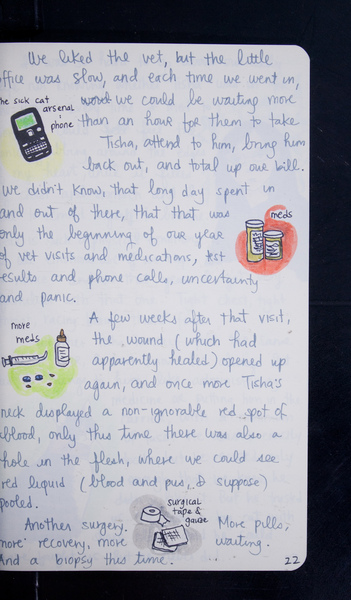 We liked the vet, but the little
office was slow, and each time we went in,
the sick cat
arsenal
:
phone
we could be waiting more
than an hour for them to take
Tisha, attend to him, bring him
back out, and total up our bill.
We didn't know, that long day spent in
and out of there, that that was
meds
only the beginning of our year
of vet visits and medications, test
results and phone calls, uncertainty
and panic.
more
meds
A few weeks after that visit,
the wound (which had
apparently healed) opened up
again, and once more Tisha's
neck displayed a non-ignorable red spot of
blood, only this time there was also a
hole in the flesh, where we could see
red liquid (blood and pus, I suppose)
pooled.
surgical
tape &
gauze
Another surgery. More pills,
more recovery, more waiting.
And a biopsy this time.
22